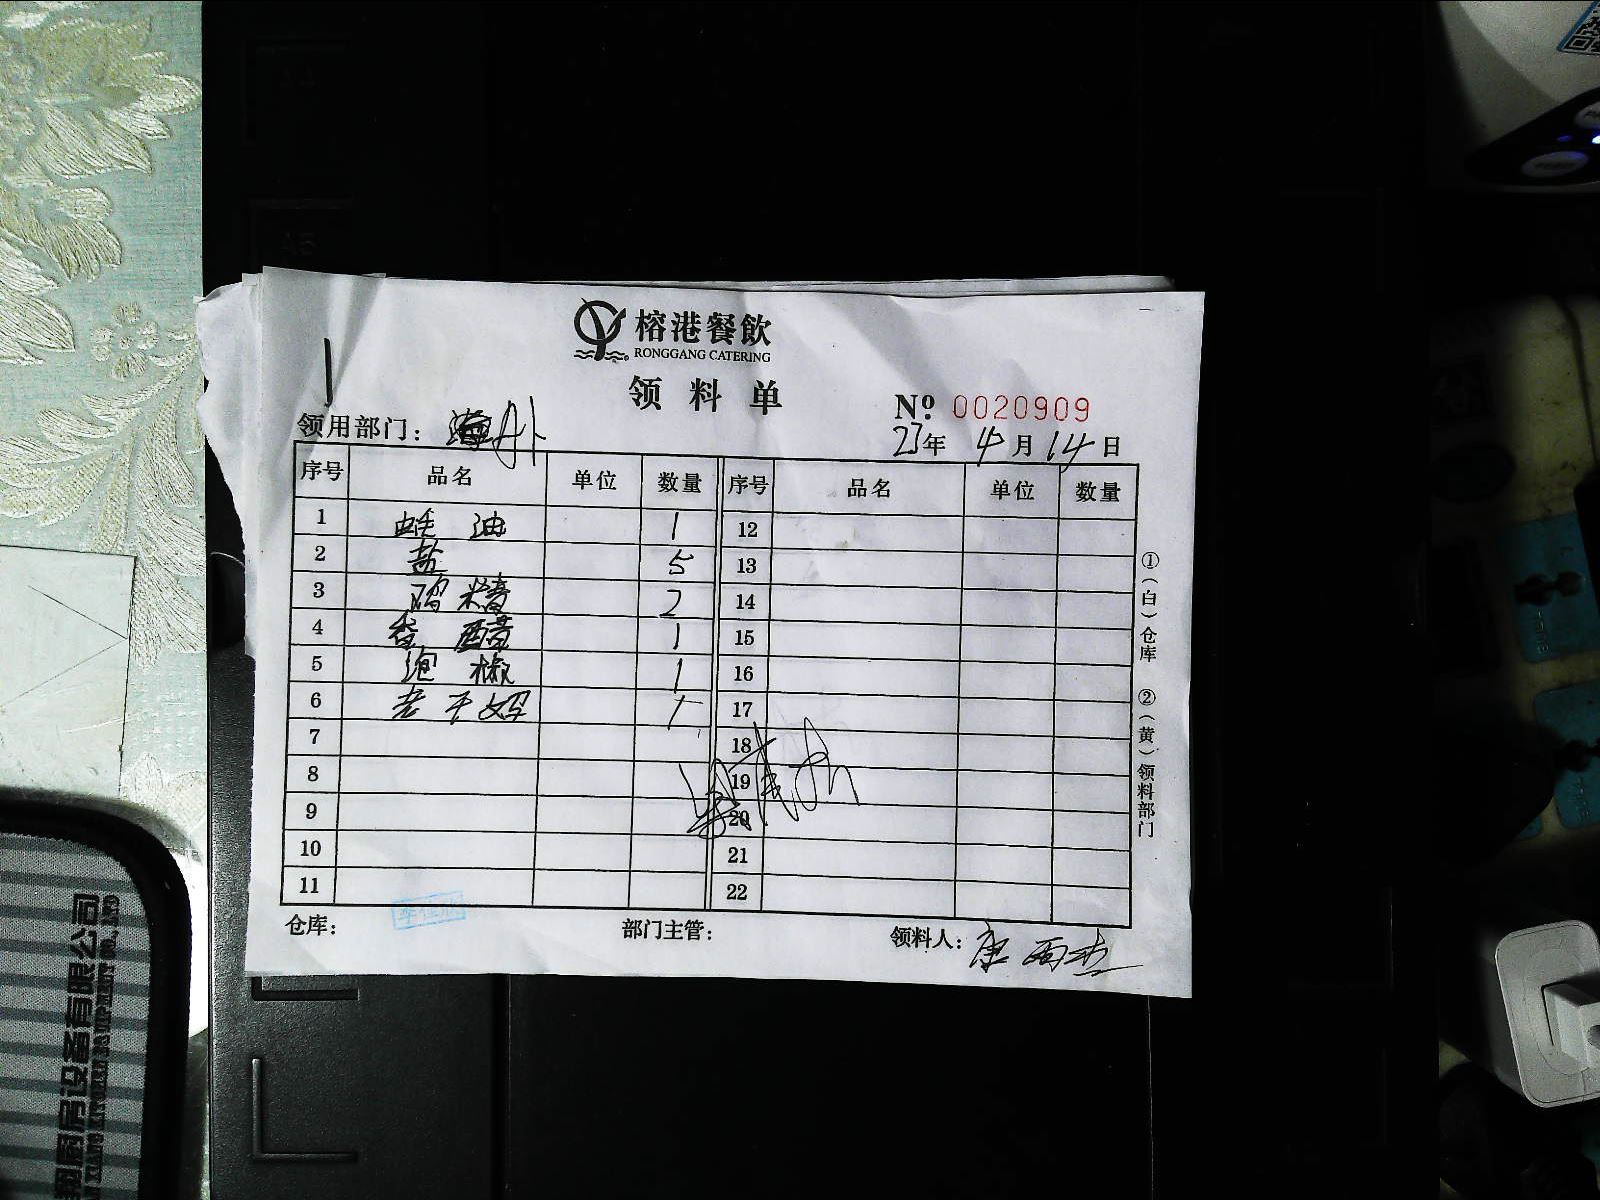 榕港餐飲
RONGGANG CATERING
领料单
No. 0020909
领用部门： 外
23年 4月 14日
序号 品名 单位 数量 序号 品名 单位 数量
1 蚝油 1 12
2 盐 5 13
3 鸡精 2 14
4 香醋 1 15
5 泡椒 1 16
6 老干妈 1 17
7 18
8 19
9 20
10 21
11 22
仓库： 部门主管： 领料人：康
①（白）仓库 ②（黄）领料部门
厨房设备有限公司
A5